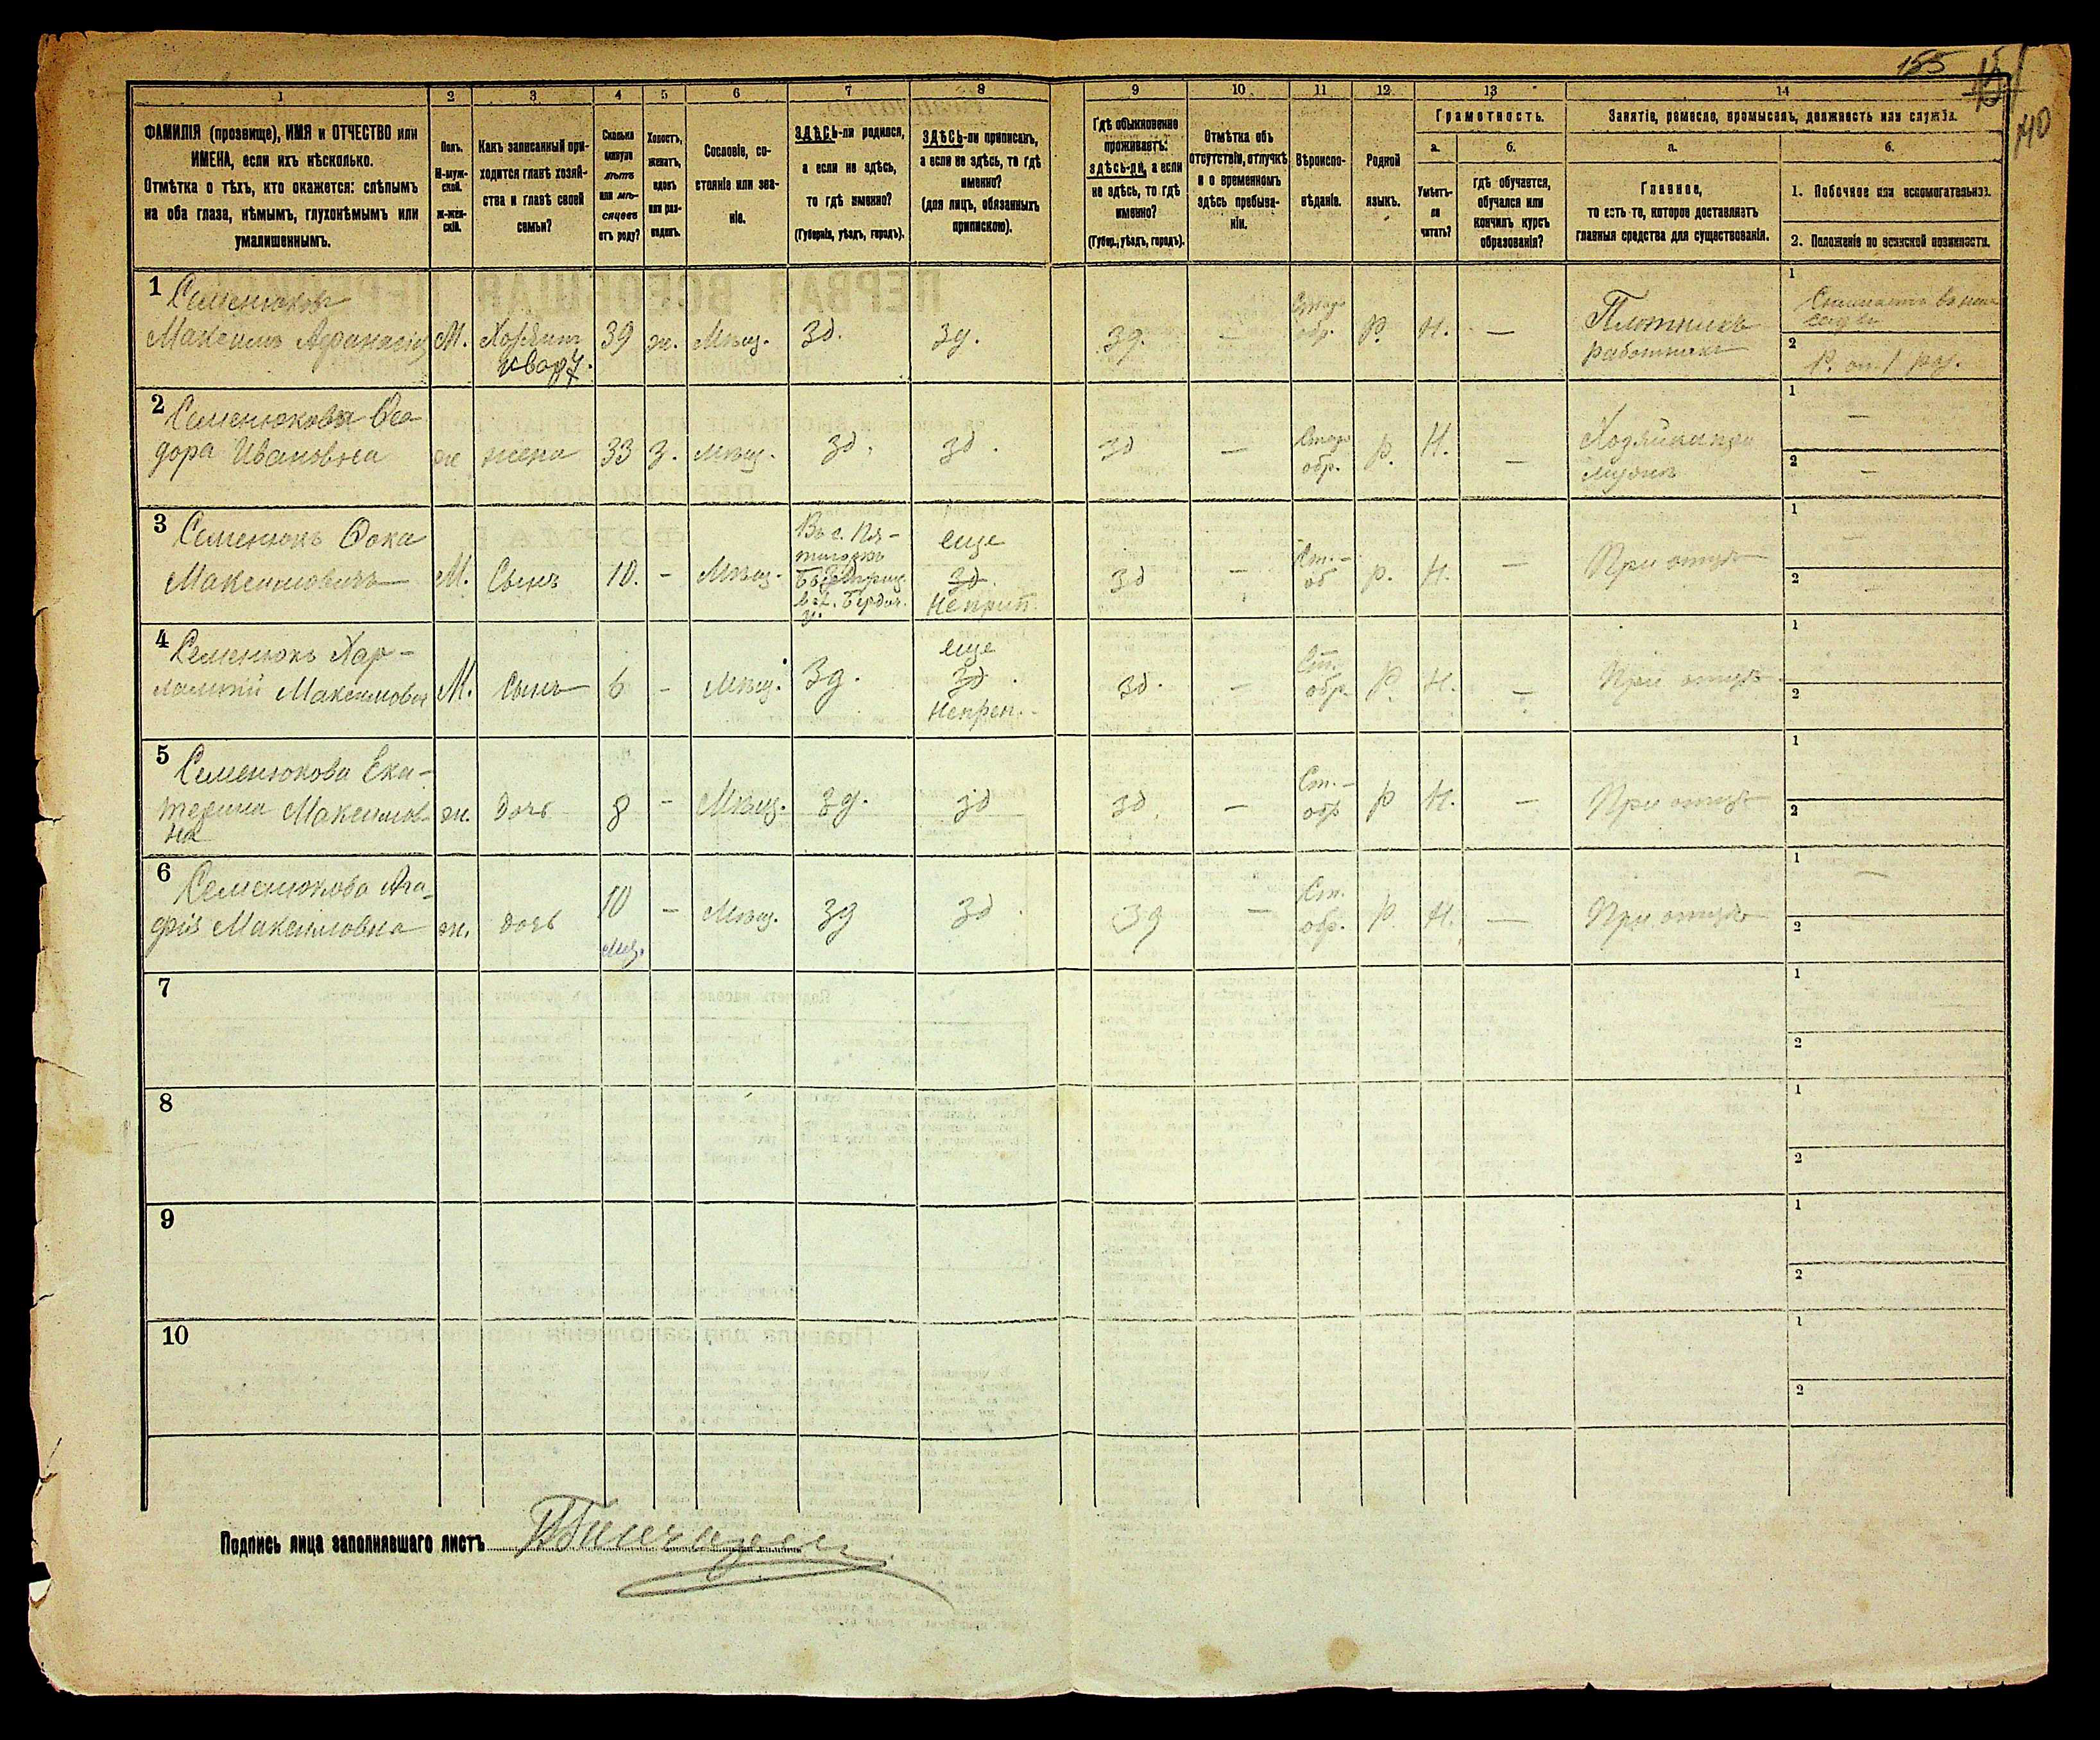 155
140
1
2
3
4
5
6
7
8
9
10
11
12
13
14
ФАМИЛІЯ (прозвище), ИМЯ и ОТЧЕСТВО или
ИМЕНА, если ихъ нѣсколько.
Отмѣтка о тѣхъ, кто окажется: слѣпымъ
на оба глаза, нѣмымъ, глухонѣмымъ или
умалишеннымъ.
Полъ.
М-муж-
ской.
Ж-жен-
скій.
Какъ записанный при-
ходится главѣ хозяй-
ства и главѣ своей
семьи?
Сколько
минуло
лѣтъ
или мѣ-
сяцевъ
отъ роду?
Холостъ,
женатъ,
вдовъ
или раз-
веденъ.
Сословіе, со-
стояніе или зва-
ніе.
ЗДѢСЬ-ли родился,
а если не здѣсь,
то гдѣ именно?
(Губернія, уѣздъ, городъ).
ЗДѢСЬ-ли приписанъ,
а если не здѣсь, то гдѣ
именно?
(для лицъ, обязанныхъ
припискою).
Гдѣ обыкновенно
проживаетъ:
здѣсь-ли, а если
не здѣсь, то гдѣ
именно?
(Губер., уѣздъ, городъ).
Отмѣтка объ
отсутствіи, отлучкѣ
и о временномъ
здѣсь пребыва-
ніи.
Вѣроиспо-
вѣданіе.
Родной
языкъ.
Грамотность.
а.
Умѣетъ-
ли
читать?
б.
гдѣ обучается,
обучался или
кончилъ курсъ
образованія?
Занятіе, ремесло, промыселъ, должность или служба.
а.
Главное,
то есть то, которое доставляетъ
главныя средства для существованія.
б.
1. Побочное или вспомогательное.
2. Положеніе по воинской повинности.
1 Семенюковъ
Максимъ М. Хозяинъ 39 ж. Мѣщ. зд. зд. зд. — обр. Р. Н. — Плотникъ
работникъ
1
2 Р. оп. 1 раз.
2 Семенюкова Ѳео-
дора Ивановна ж жена 33 З. мѣщ. зд. зд. зд — обр. р. Н. — Хозяйка при
мужѣ
1 —
2 —
3 Семенюкъ Ѳока
Максимовичъ М. Сынъ 10. - Мѣщ. еще зд. Неприп. зд — Ст. - об р. Н. — При отцѣ
1 —
2 —
4 Семенюкъ Хар-
лампій Максимович М. Сынъ 6 - Мѣщ. Зд. еще зд. Неприп. зд. — Ст. обр Р. Н. — При отцѣ
1
2
5 Семенюкова Ека-
терина Максимов-
на ж. дочь 8 - Мѣщ. зд. зд зд — Ст. - обр р Н. — При отцѣ
1
2
6 Семенюкова Ага-
фія Максимовна ж. дочь 10 мѣс. — Мѣщ. зд зд. зд — Ст. обр. р. Н. — При отцѣ
1 —
2
7
1
2
8
1
2
9
1
2
10
1
2
Подпись лица заполнявшаго листъ